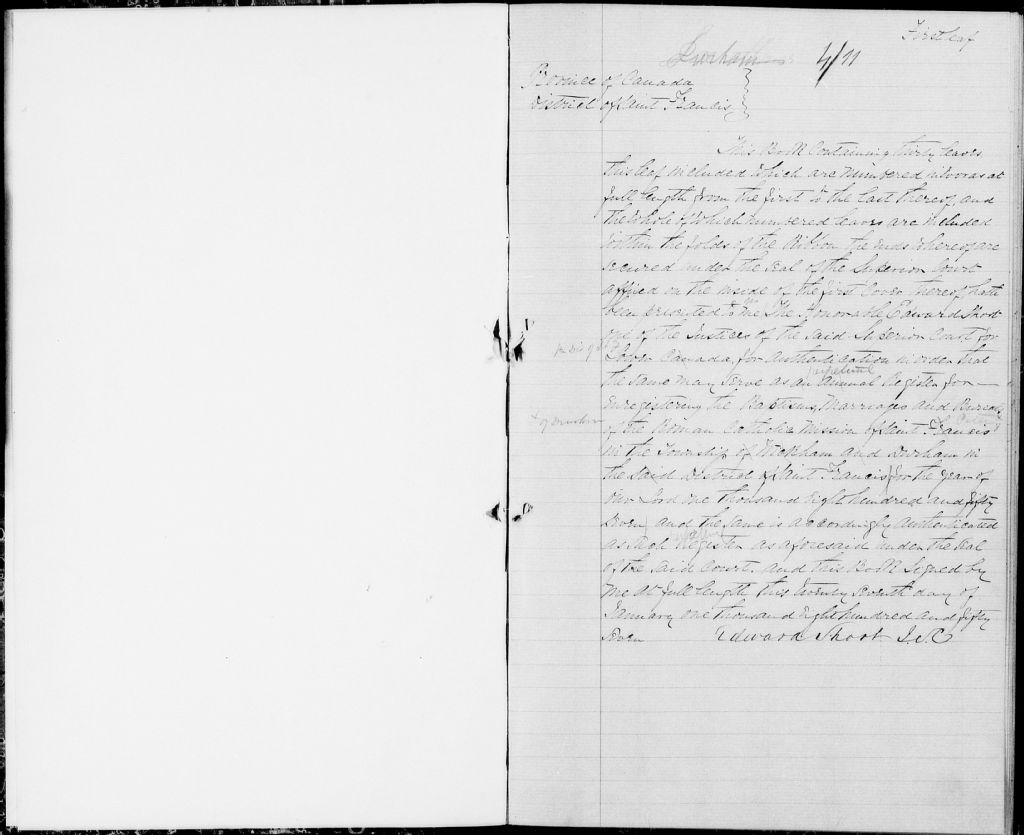 First leaf
Durham 4/71
Province of Canada
District of Saint Francis
This Book Containing thirty leaves
this leaf included which are numbered in words at
full length from the first to the last thereof, and
the whole of which numbered leaves are included
within the folds of the Ribbon the ends whereof are
secured under the Seal of the Superior Court
affixed on the inside of the first Cover thereof hath
been presented to me The Honorable Edward Short
one of the Justices of the said Superior Court for
Lower Canada, for Authentication in order that
perpetual
the same may serve as an Annual Register for
enregistering the Baptisms, Marriages and Burials
of the Roman Catholic Mission of Saint Francis
in the Township of Wickham and Durham in
the said District of Saint Francis for the year of
our Lord one thousand Eight hundred and fifty
seven, and the same is accordingly authenticated
as such Register as aforesaid under the Seal
of the said Court, and this Book Signed by
me at full length this twenty seventh day of
January one thousand Eight hundred and fifty
seven Edward Short J.S.C